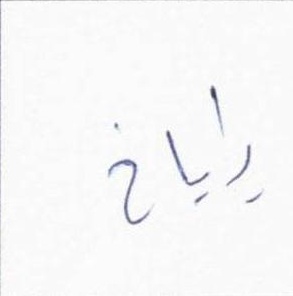 يراياخ